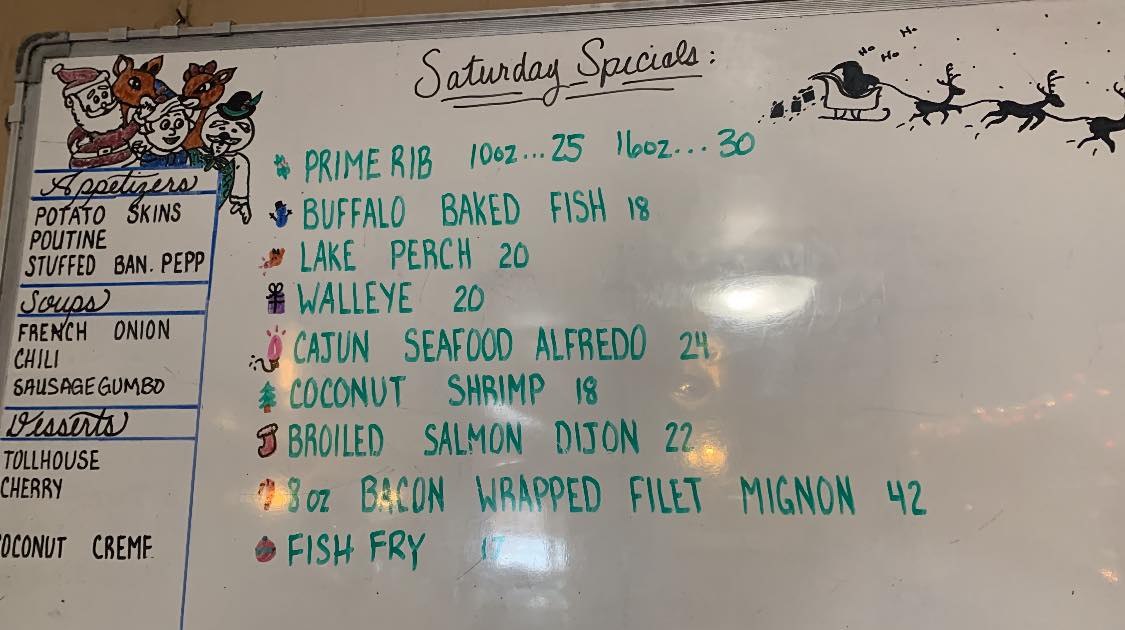 Saturday Specials:
Ho Ho Ho
Appetizers
POTATO SKINS
POUTINE
STUFFED BAN. PEPP
Soups
FRENCH ONION
CHILI
SAUSAGE GUMBO
Desserts
TOLLHOUSE
CHERRY
COCONUT CREME
PRIME RIB 10oz...25 16oz...30
BUFFALO BAKED FISH 18
LAKE PERCH 20
WALLEYE 20
CAJUN SEAFOOD ALFREDO 24
COCONUT SHRIMP 18
BROILED SALMON DIJON 22
8oz BACON WRAPPED FILET MIGNON 42
FISH FRY 17